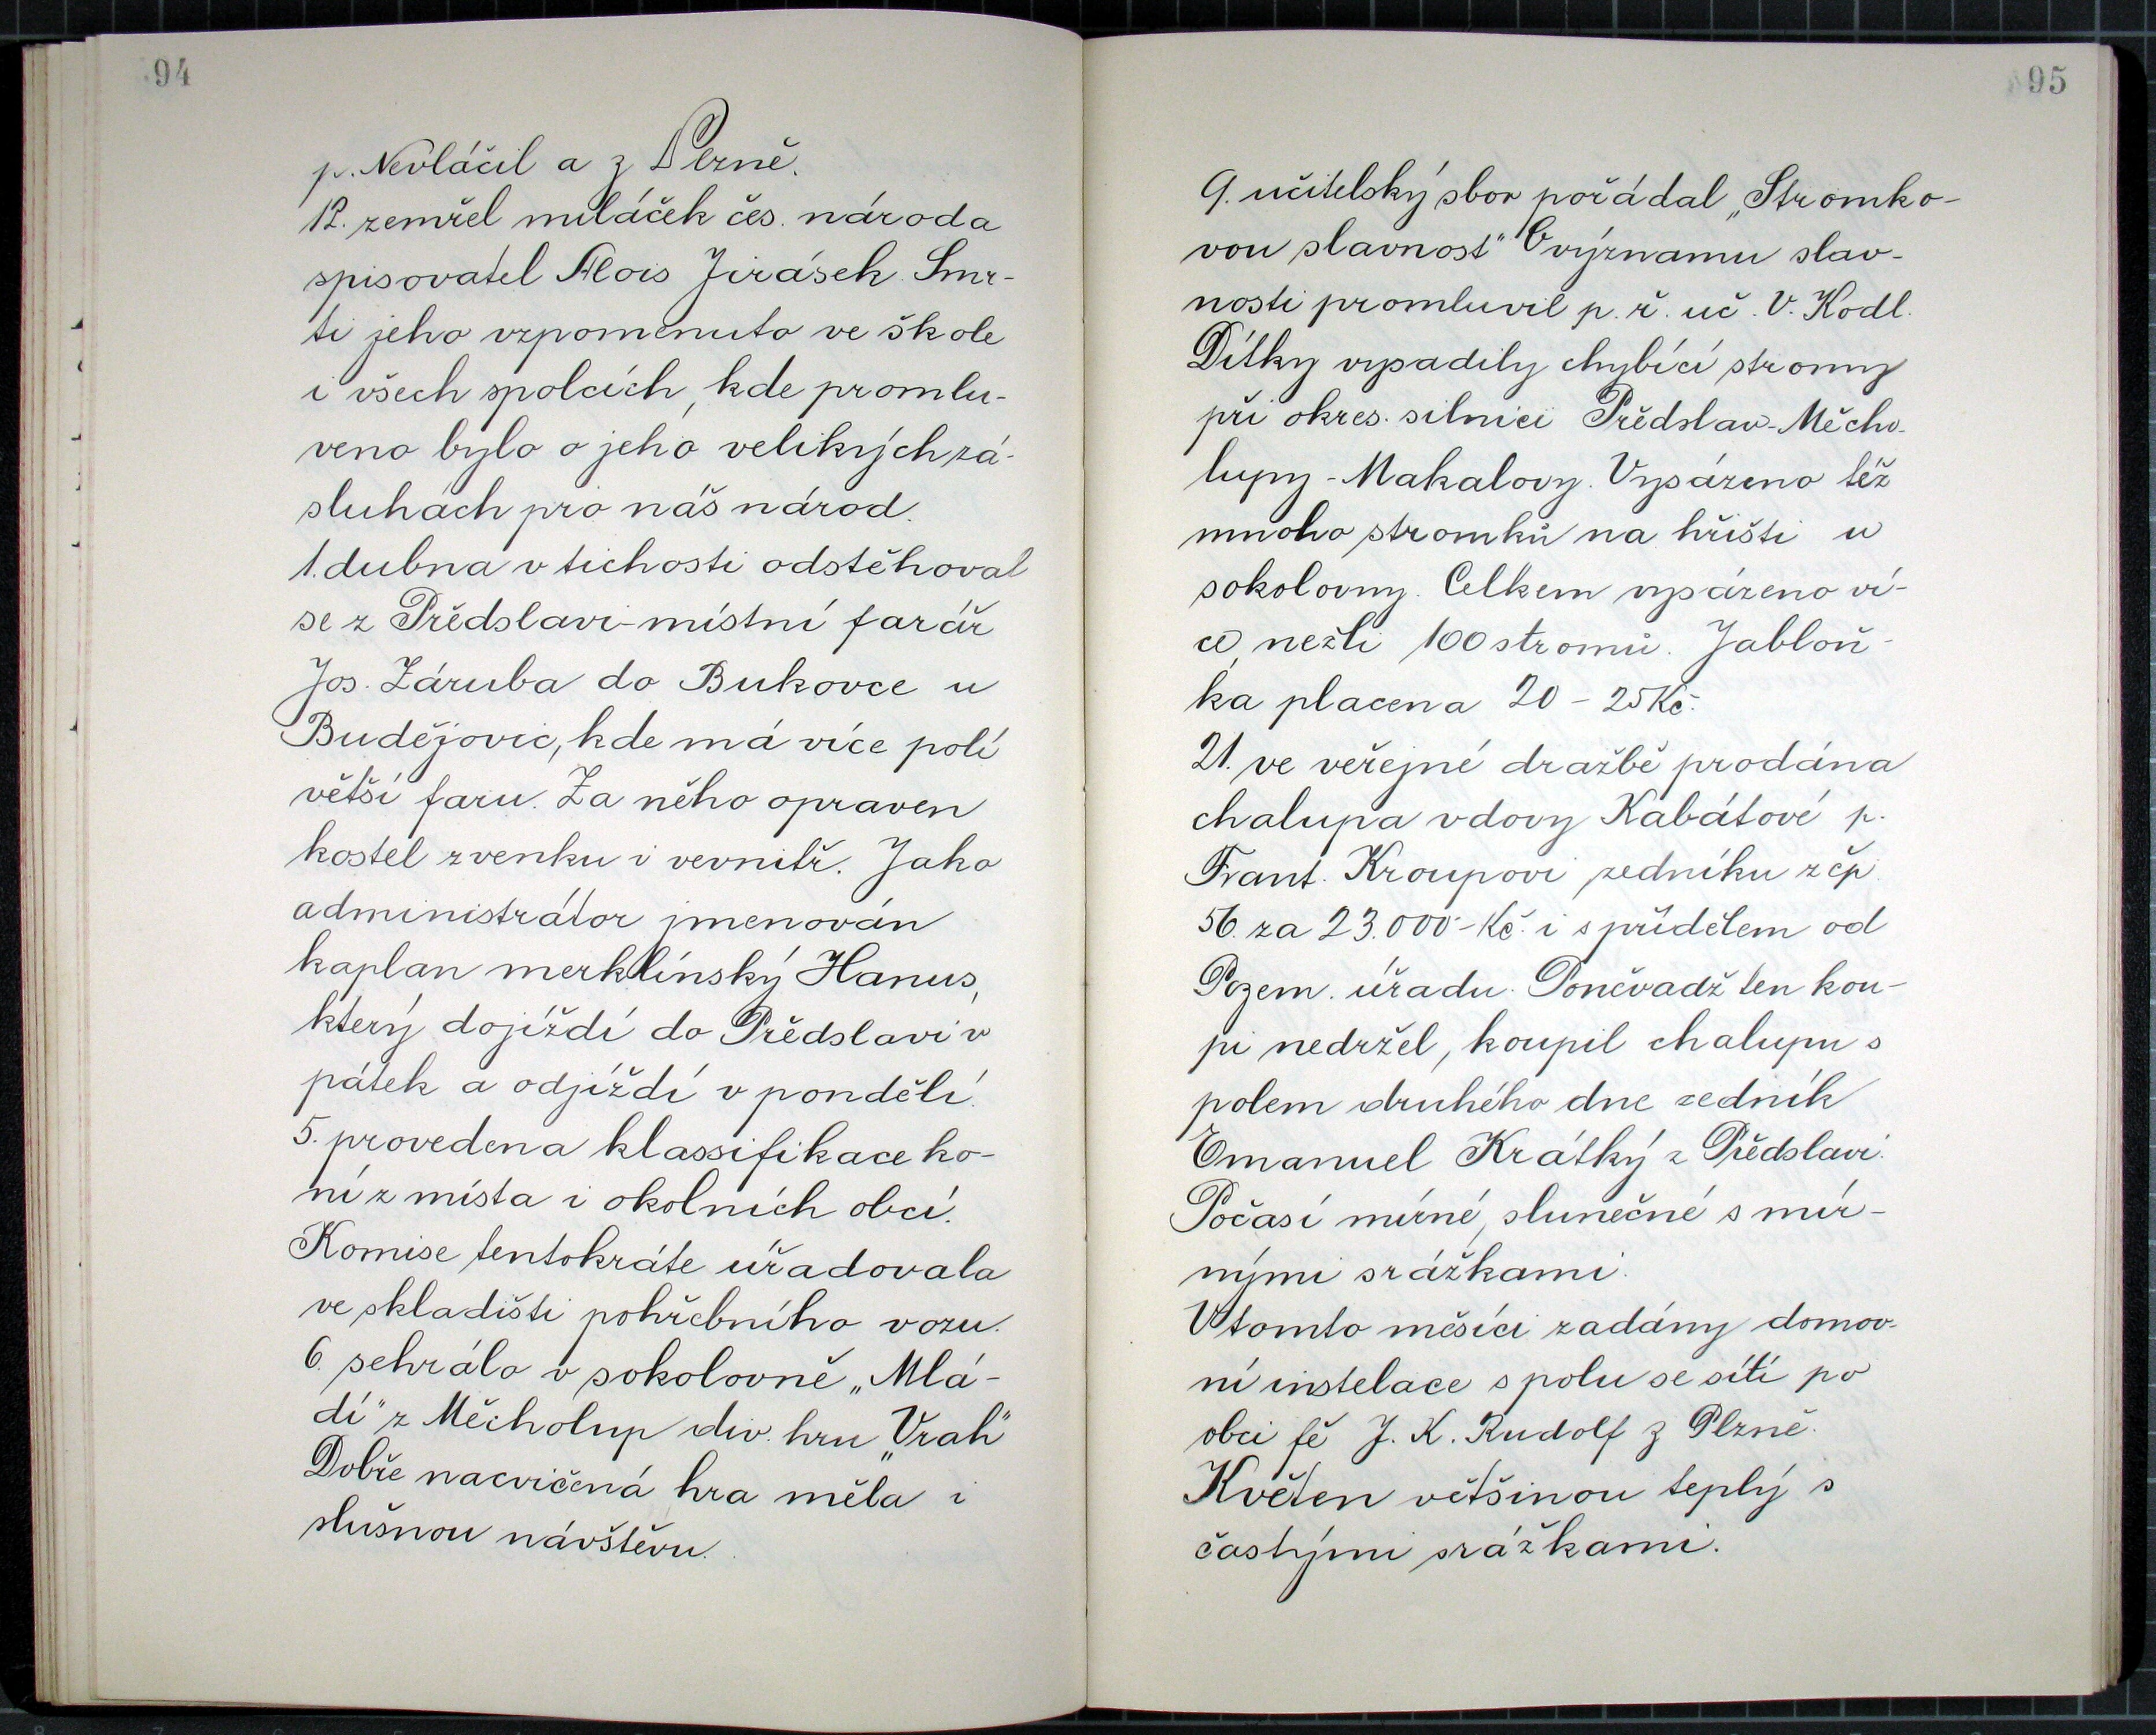 94
p. Nevláčil a z Plzně.
12. zemřel miláček čes. národa
spisovatel Alois Jirásek. Smr-
ti jeho vzpomenuto ve škole
i všech spolcích, kde promlu-
veno bylo o jeho velikých zá-
sluhách pro náš národ.
1. dubna v tichosti odstěhoval
se z Předslavi místní farář
Jos. Záruba do Bukovce u
Budějovic, kde má více polí
větší faru. Za něho opraven
kostel zvenku i vevnitř. Jako
administrátor jmenován
kaplan merklínský Hanus,
který dojíždí do Předslavi v
pátek a odjíždí v pondělí.
5. provedena klassifikace ko-
ní z místa i okolních obcí.
Komise tentokráte úřadovala
ve skladišti pohřebního vozu.
6. sehrálo v sokolovně „Mlá-
dí" z Měcholup div. hru „Vrah"
Dobře nacvičená hra měla i
slušnou návštěvu.
95
9. učitelský sbor pořádal „Stromko-
vou slavnost" O významu slav-
nosti promluvil p. ř. uč. V. Kodl.
Dítky vysadily chybící stromy
při okres. silnici Předslav-Měcho-
lupy-Makalovy. Vysázeno též
mnoho stromků na hřišti u
sokolovny. Celkem vysázeno ví-
ce, nežli 100 stromů. Jabloň-
ka placena 20 - 25 Kč.
21. ve veřejné dražbě prodána
chalupa vdovy Kabátové p.
Frant. Kroupovi zedníku z čp.
56. za 23.000 - Kč. i s přídělem od
Pozem. úřadu. Poněvadž ten kou-
pi nedržel, koupil chalupu s
polem druhého dne zedník
Emanuel Krátký z Předslavi.
Počasí mírné, slunečné s mír-
nými srážkami.
V tomto měsíci zadány domov-
ní instelace spolu se sítí po
obci fě J. K. Rudolf z Plzně.
Květen většinou teplý s
častými srážkami.